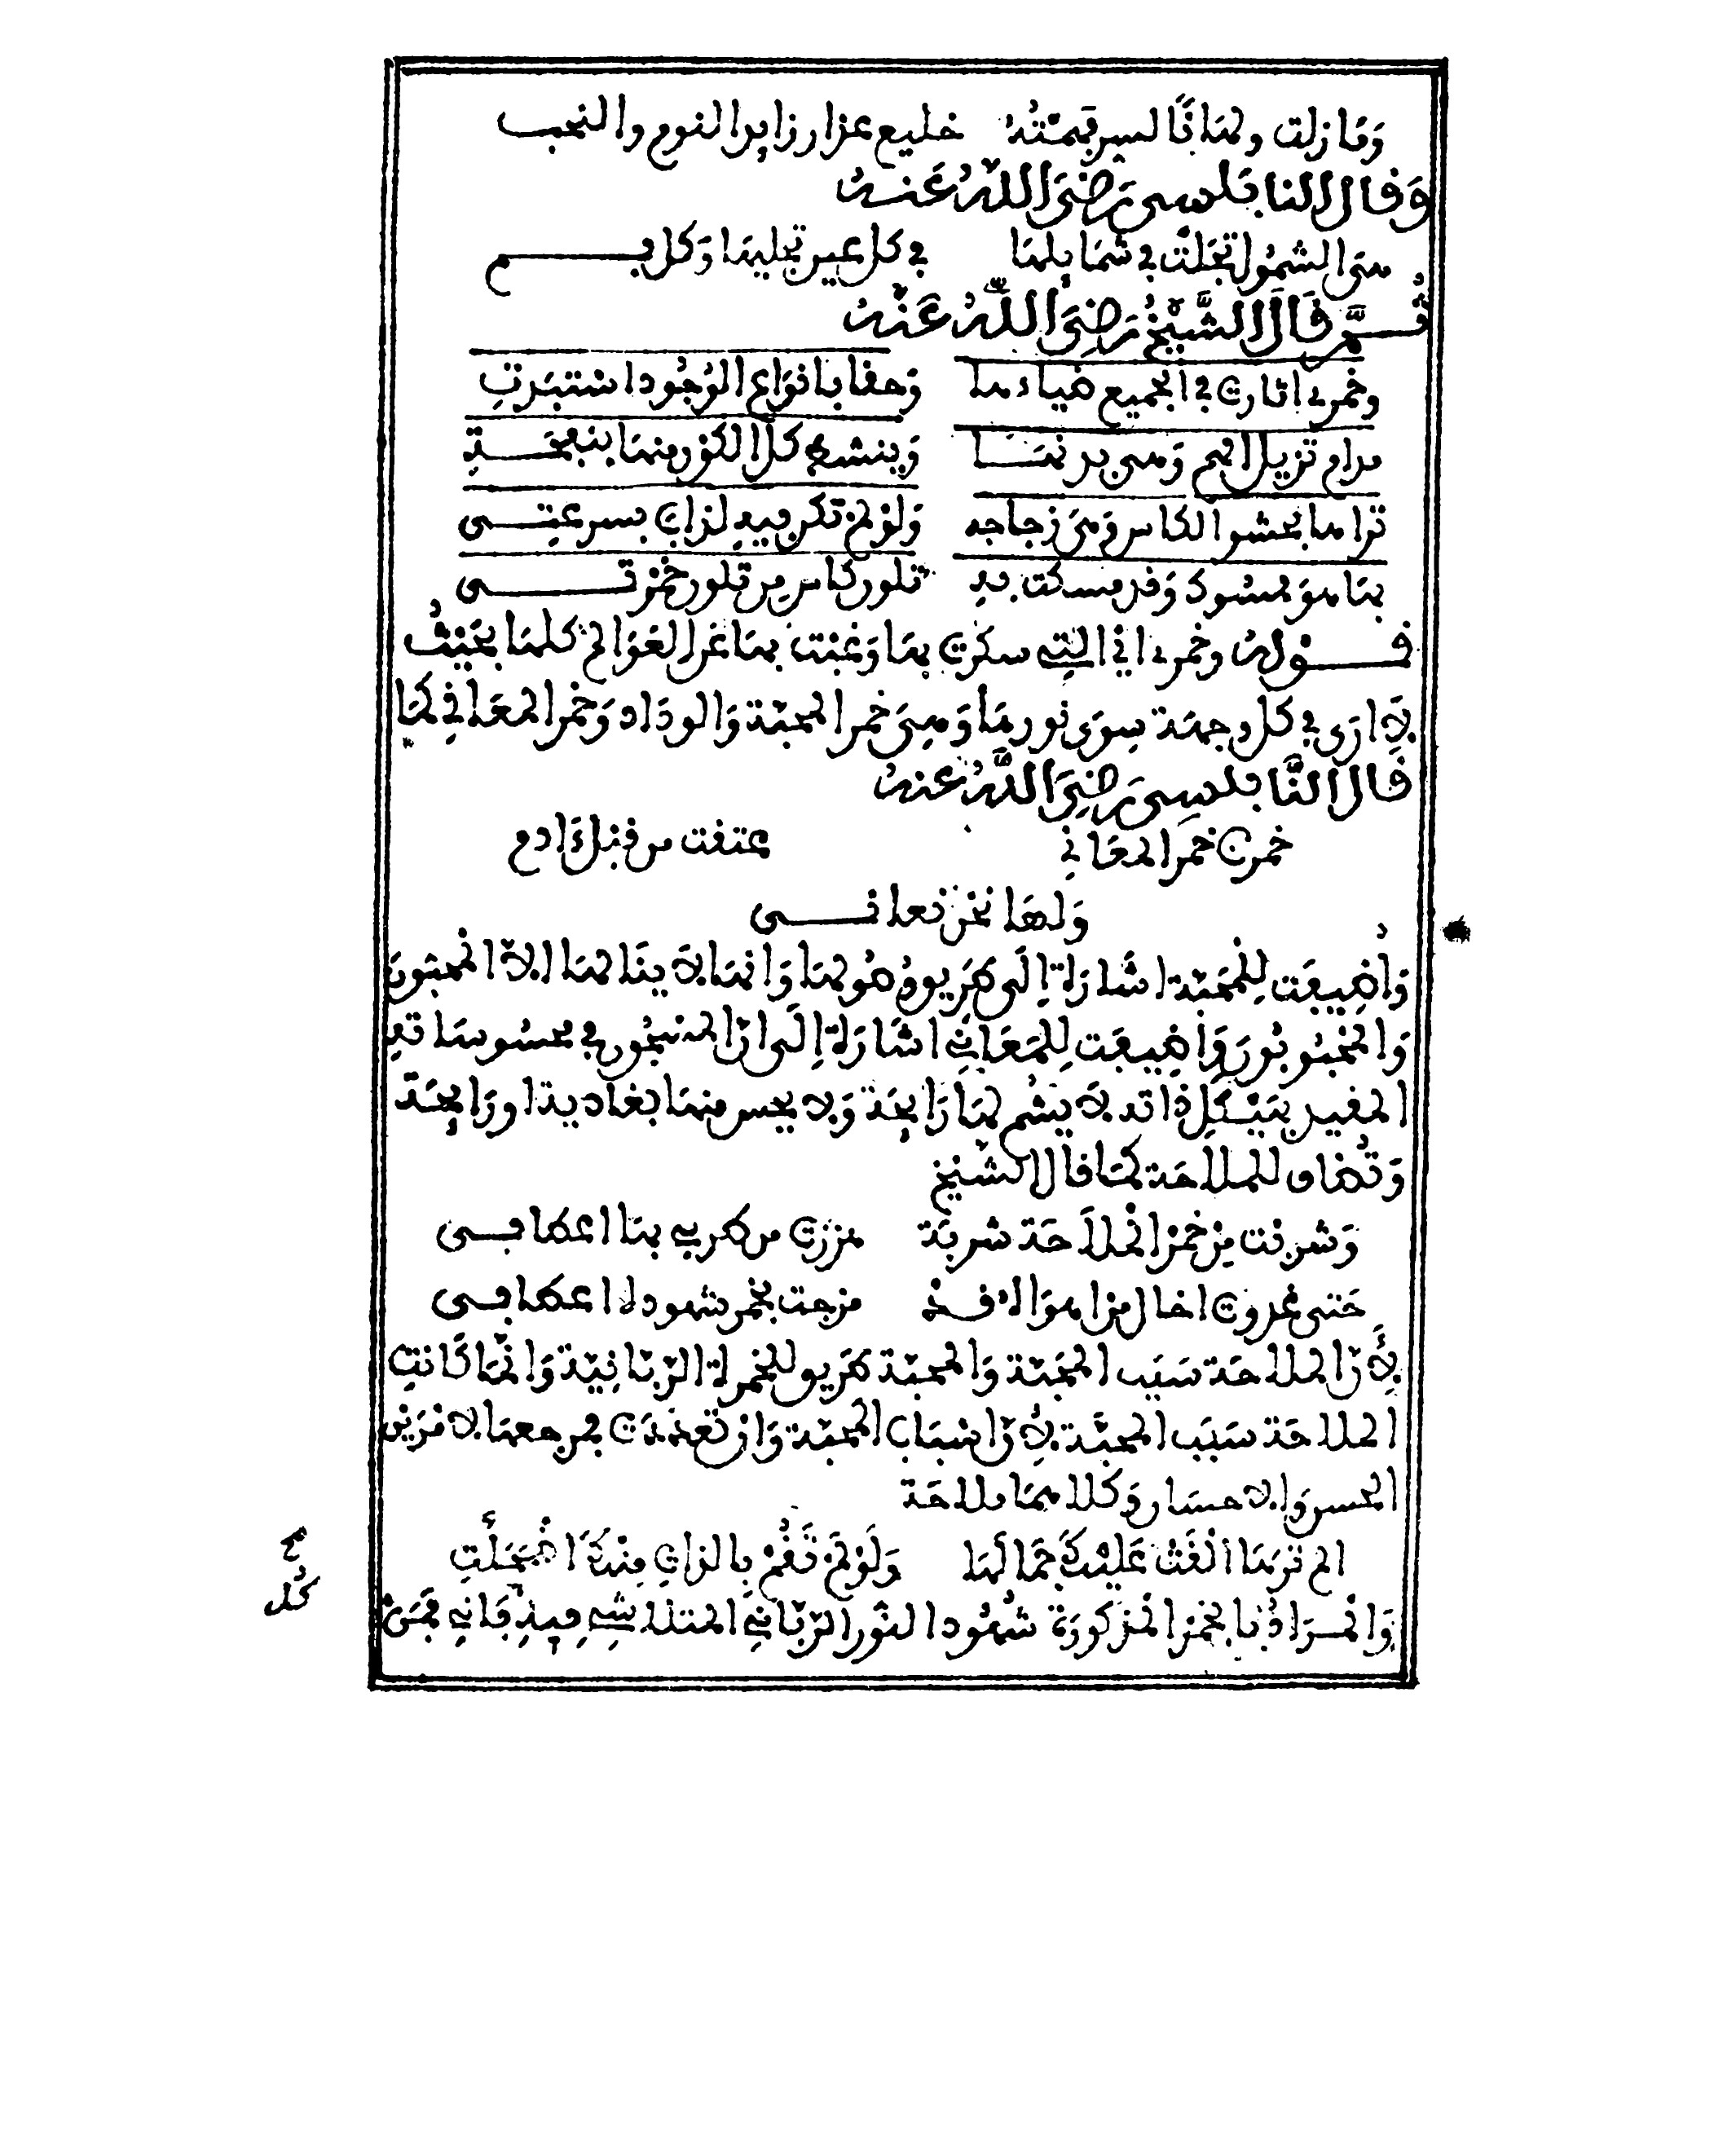 وَمَا زلت ولهانا أسير قهمته خليع عذار زايد النوم والنحب
وَقال النابلسي رَضيَ اللهُ عَنهُ
هي الشمول تجلت في شمايلها في كل عين تجليها وَكل فم
ثم قَالَ الشَّيْخُ رَضِيَ اللَّهُ عَنْهُ
وخمرى اثارت في الجميع ضياءها وَحقا بانوَاع الوُجُود استبَدتِ
مدام تزيل الهم وَهي بدنها وَينشى كل الكون منها بنفحة
تراها بحشو الكاس وَهيَ زجاجه وَلوْ لم تكن فيه لذابت بسرعتى
بها هوَ ممسوك وَقد مسكت به تلون كاس مِن تلون خمرتى
قولهُ وخمرى اي التي سكرت بهَا وَغبْت بهَا عن العَوَالم كلهَا بحَيْثُ
لاَ ارَى في كل وجهَة سِوَى نورهَا وَهِيَ خمر المحبَّة وَالودَاد وَخمر المعَاني كمَا
قَال النَّابلسِي رَضِيَ اللَّهُ عنهُ
خمرتي خمر المعَاني عتقت من قبل ءَادم
وَلهَا نحن نعانى
وَأُضِيفَت لِلمَحَبَّة اشَارَة إِلَى طَريق وُصُولهَا وَانهَا لاَ ينَالهَا إلاَّ المحبون
وَالمحْبُوبُونَ وَأُضِيفَت لِلمَعَانِي اشَارَة إِلَى أنَّ المسجُون في محسُوسَاته
المقيد بهَيْكَلِ ذاته لاَ يشُم لهَا رَايحَة وَلاَ يحس منهَا بغادية اورَايحَة
وَتُضَاف للملاحَة كمَا قال الشيْخ
وَشربْت مِنْ خمْر الملاَحَة شربَة هززت من طربي بهَا اعطافى
حَتى غدوت اخال هذا هوَ الذى مزجت بخمر شهوده اعطافى
لأَنَّ الملاحَة سَبَب المحَبَّة وَالمحَبَّة طَريق للخمرة الرَّبَّانِيَّة وَانمَّا كَانتِ
الملاحَة سَبَب المحبَّة لأَنَّ اسْبَابَ المحبَّة وَان تعَددَت فمرجعهَا لأمْرَيْن
الحسن وَالاحسَان وَكلاهمَا ملاحَة
الم ترهَا القَتْ عَليْك جَمَالهَا وَلَوْ لمْ تَقُمْ بِالذات مِنْكَ اضْمَحَلَّتِ
وَالمُرَادُ بالخمْر المذكورَة شُهُود النُّور الرَّبَّانِي المتلاشِي فِيهِ فَانِي فمَتَى
صح
كل